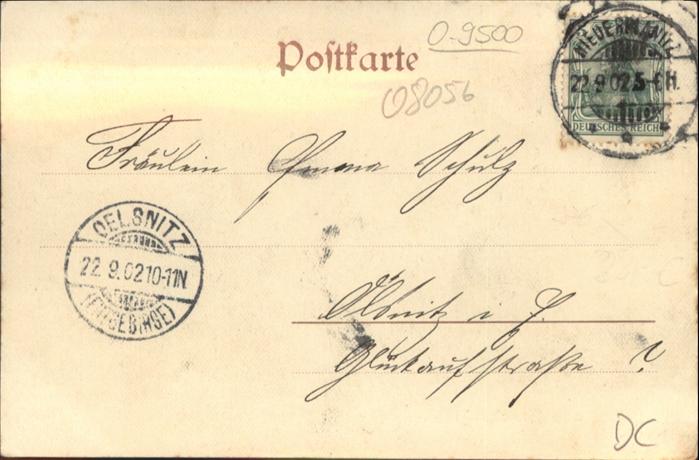 O-9500
Postkarte
08056
NIEDERPLANITZ
22.9.02.5-6N.
DEUTSCHES REICH
Fräulein Emma Schulz
OELSNITZ
22.9.02.10-11N.
(ERZGEBIRGE)
Ölsnitz i. E.
Glückaufstraße ?
DC